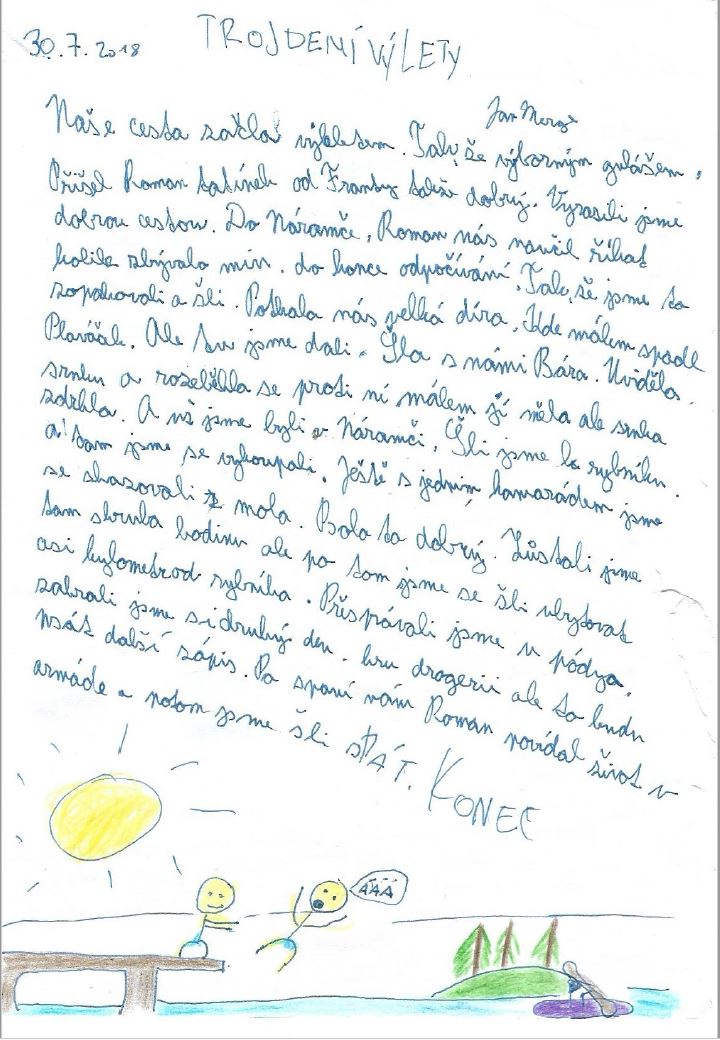 30.7.2018
TROJDENÍ VÝLETY
Jan
Naše cesta začla výkletem. Tak, že výborným gulášem.
Přišel Roman tatínek od Franty taky dobrý. Vyrasili jsme
dobrou cestou. Do Náramče, Roman nás naučil říkat
kolik zbývalo min. do konce odpočívání. Tak, že jsme to
zopakovali a šli. Potkala nás velká díra, kde málem spadl
Plaváček. Ale tu jsme dali. Šla s námi Bára. Uviděla
srnku a rozeběhla se proti ní málem jí měla ale srnka
zdrhla. A už jsme byli v Náramči. Šli jsme k rybníku.
a tam jsme se vykoupali. Ještě s jedním kamarádem jsme
se shazovali z mola. Bolo to dobrý. Zůstali jsme
tam zhruba hodinu ale po tom jsme se šli ubytovat
asi kylometrod rybníka. Přespávali jsme u pódya.
zahrali jsme si druhý den. hru drogerii ale to budu
psát další zápis. Po spaní nám Roman povídal život v
armáde a potom jsme šli SPÁT. KONEC
ÁÁÁ